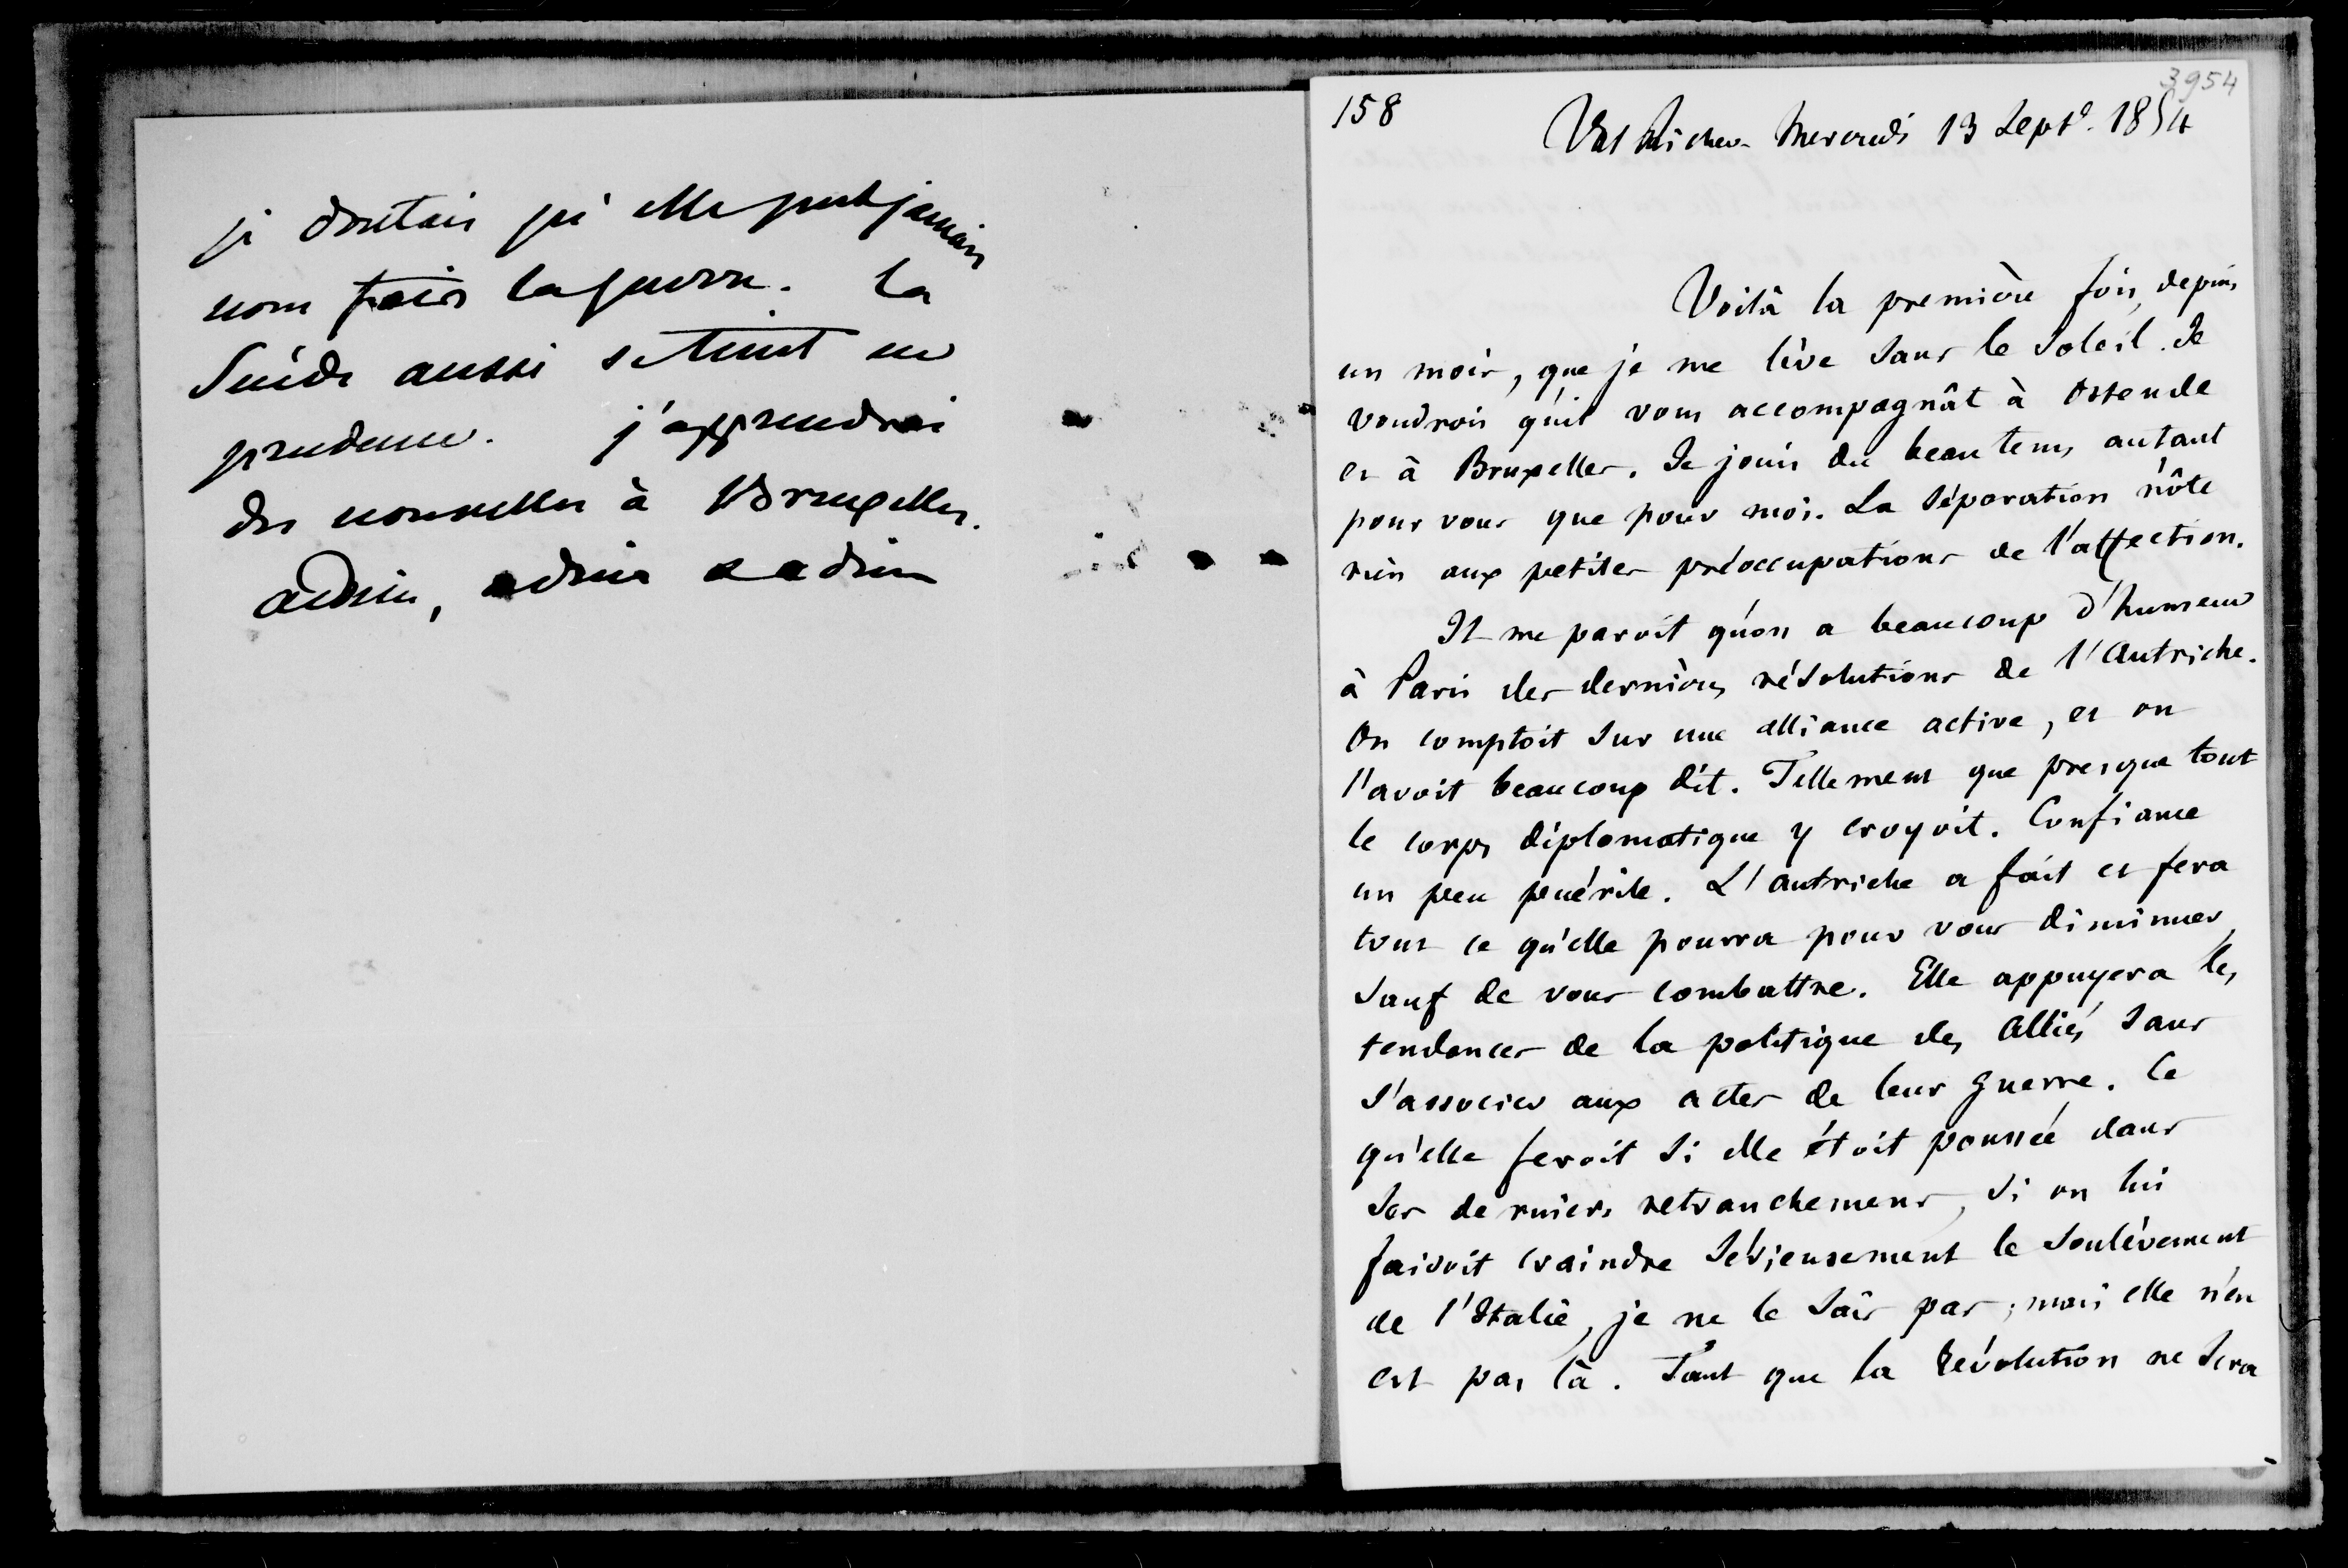 je doutais qu'elle put jamais
nous faire la guerre. la
Suède aussi se tient en
prudence. j'apprendrai
des nouvelles à Bruxelles.
adieu, adieu adieu
3954
158
Val Richer Mercredi 13 Septe. 1854
Voilà la première fois, depuis
un mois, que je me lève sans le Soleil. Je
voudrois qu'il vous accompagnât à Ostende
et à Bruxelles. Je jouis du beau tems autant
pour vous que pour moi. La Séparation n'ôte
rien aux petites préoccupations de l'affection.
Il me paroit qu'on a beaucoup d'humeur
à Paris des dernières résolutions de l'Autriche.
On comptoit Sur une alliance active, et on
l'avoit beaucoup dit. Tellement que presque tout
le corps diplomatique y croyoit. Confiance
un peu puérile. L'Autriche a fait et fera
tout ce qu'elle pourra pour vous diminuer,
Sauf de vous combattre. Elle appuyera les
tendances de la politique des Alliés Sans
S'associer aux actes de leur guerre. Ce
qu'elle feroit Si elle étoit poussée dans
Ses derniers retranchemens, Si on lui
faisoit craindre Sérieusement le Soulèvement
de l'Italie, je ne le Sais pas ; mais elle n'en
est pas là. Tant que la Révolution ne Sera